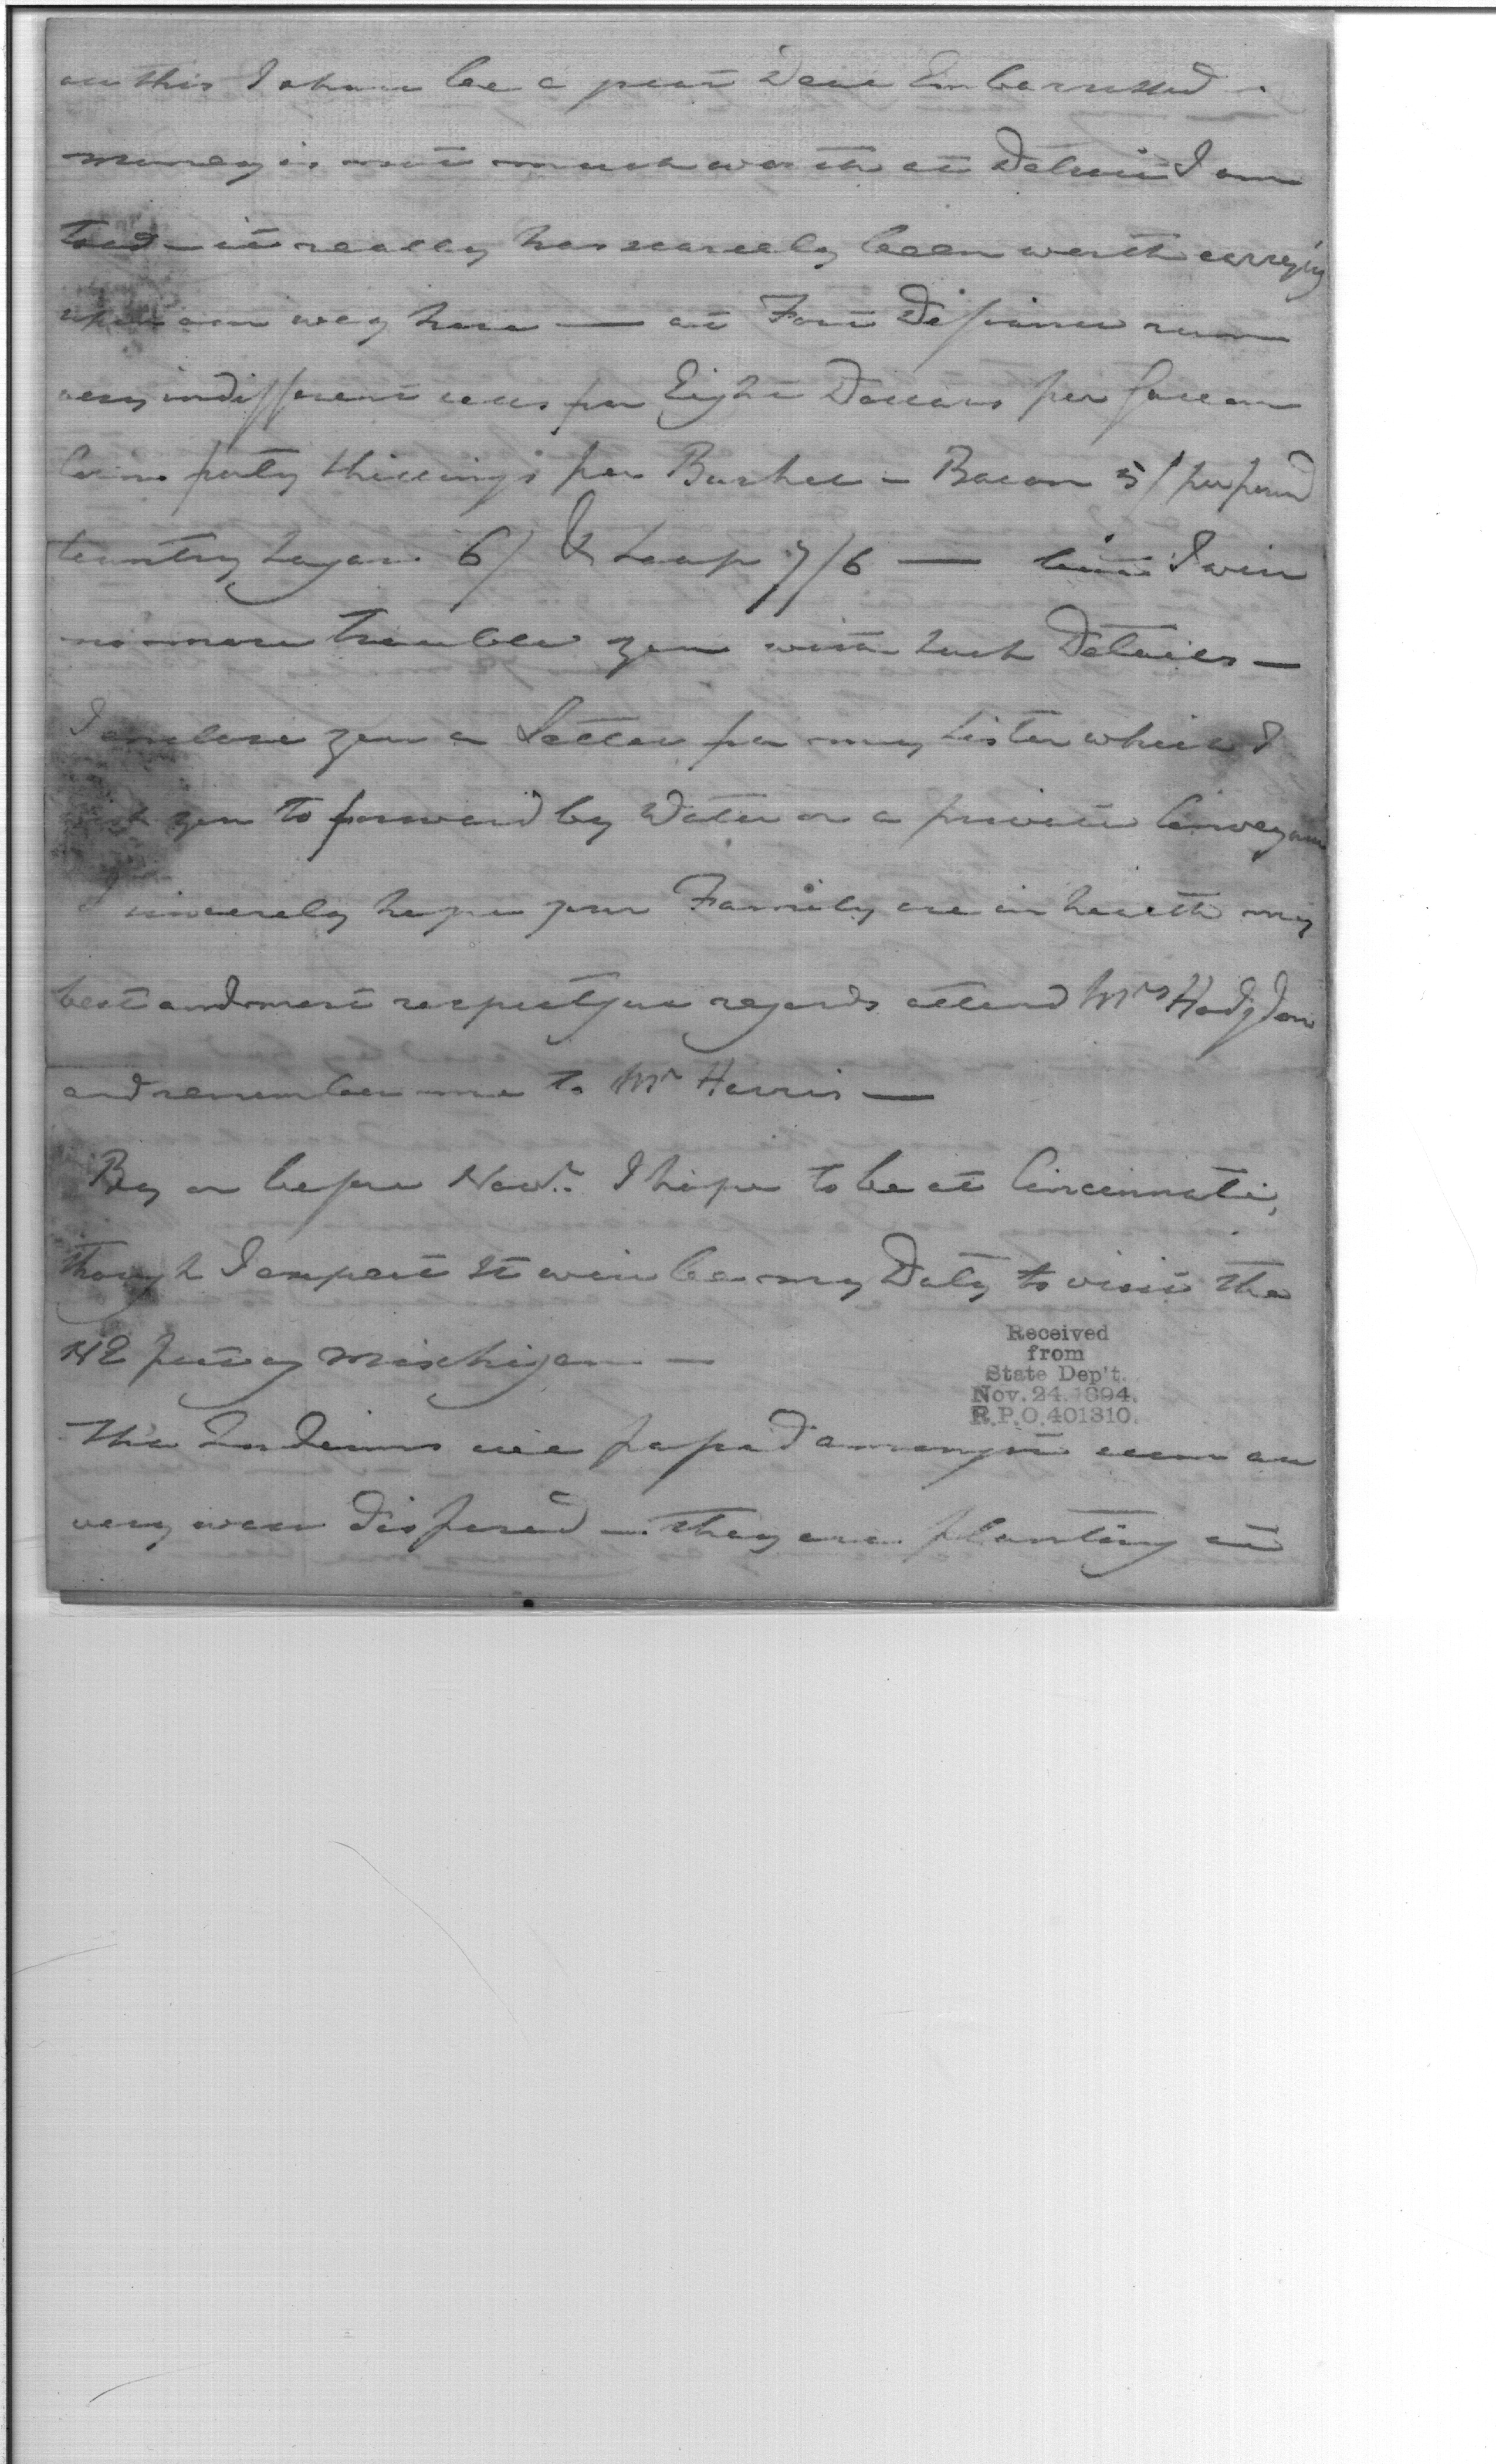 on this I shall be a great Deal Embarrassed -
money is not much worth at Detroit I am
told - it really has scarcely been worth carrying
upon our way here — at Fort Defiance rum
very indifferent sells for Eight Dollars per Gallon
Corn forty shillings per Bushel - Bacon 5/ per pound
Country Sugar 6/ & Loaf 7/6 — but I will
no more trouble you with such Details —
I enclose you a Letter for my Sister which I
wish you to forward by Water or a private Conveyance
I sincerely hope your Family are in health my
best and most respectful regards attend Mrs Hodgdon
and remember me to Mr Harris —
By or before Novr. I hope to be at Cincinnati,
though I expect it will be my Duty to visit the
post of Mischigan —
The Indians we pass'd amongst seem all
very well disposed — they are planting at
Received
from
State Dep't.
Nov. 24, 1894.
R.P.O. 401310.